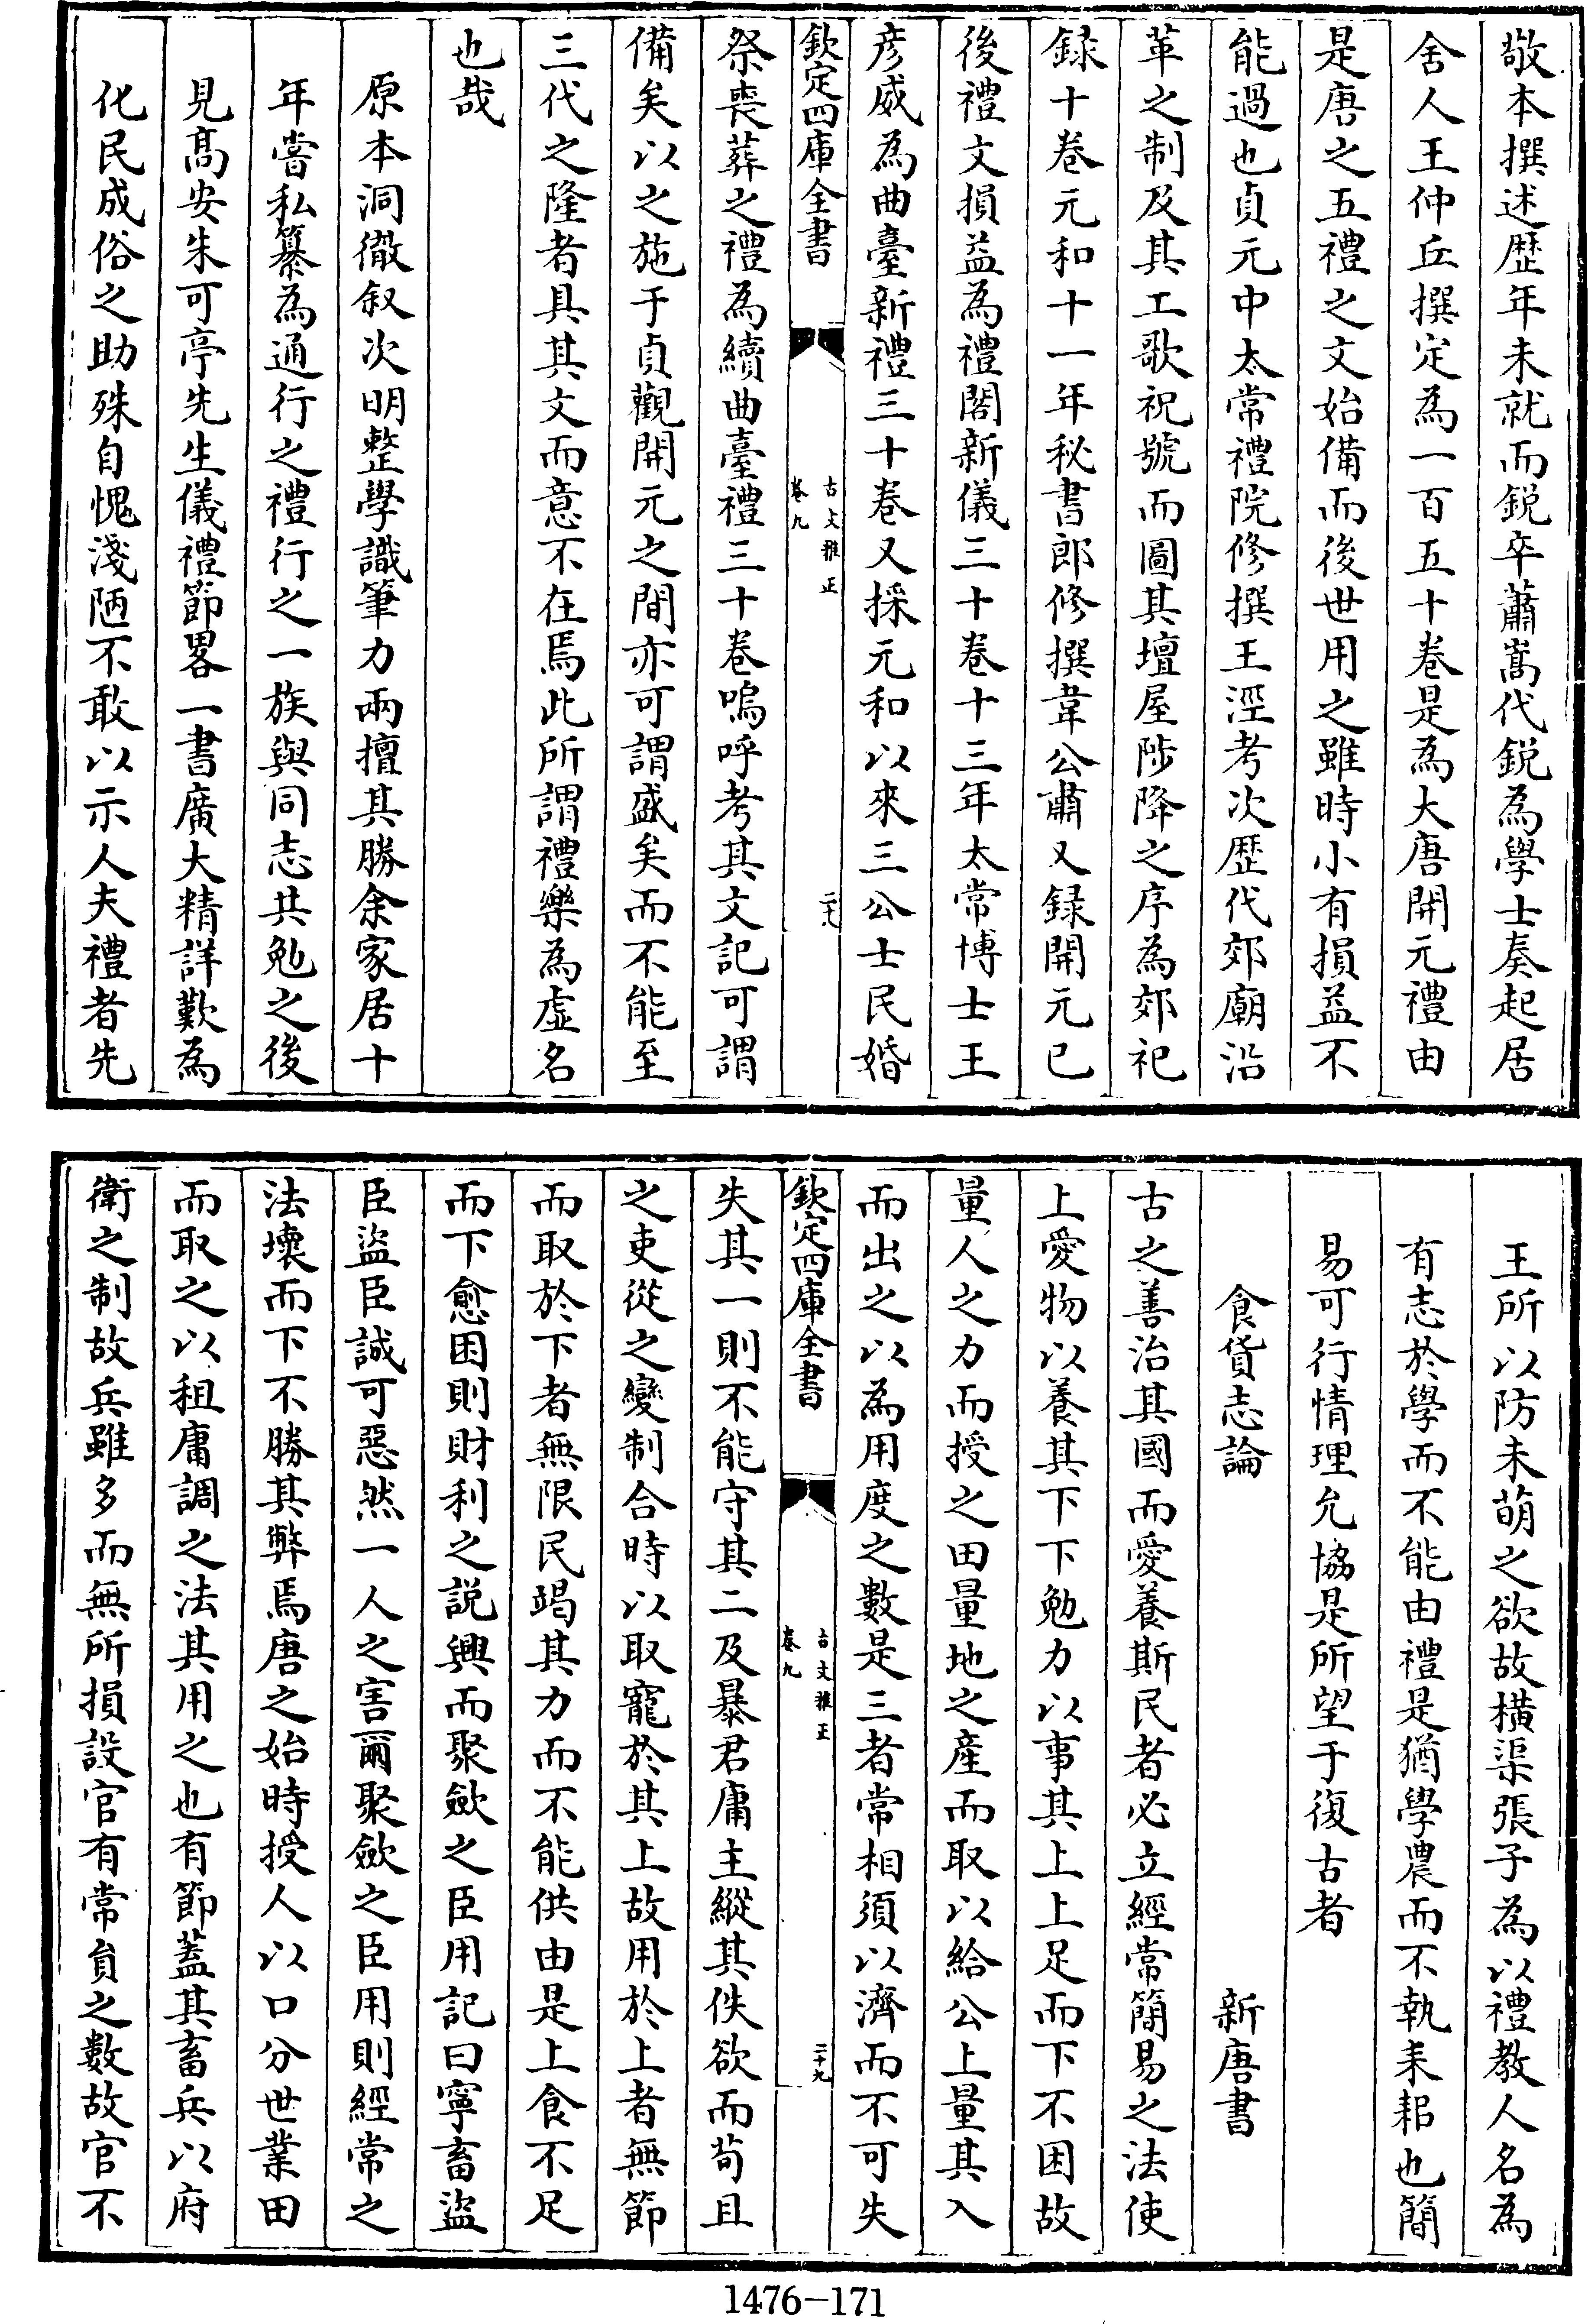 敬本撰述歴年未就而鋭卒蕭嵩代鋭為學士奏起居
舍人王仲丘撰定為一百五十卷是為大唐開元禮由
是唐之五禮之文始備而後世用之雖時小有損益不
能過也貞元中太常禮院修撰王涇考次歴代郊廟沿
革之制及其工歌祝號而圖其壇屋陟降之序為郊祀
録十卷元和十一年秘書郎修撰韋公肅又録開元已
後禮文損益為禮閣新儀三十卷十三年太常博士王
彦威為曲臺新禮三十卷又採元和以來三公士民婚
欽定四庫全書
古文雅正
卷九
二十八
祭喪葬之禮為續曲臺禮三十卷嗚呼考其文記可謂
備矣以之施于貞觀開元之間亦可謂盛矣而不能至
三代之隆者具其文而意不在焉此所謂禮樂為虚名
也哉
原本洞徹叙次明整學識筆力兩擅其勝余家居十
年嘗私纂為通行之禮行之一族與同志共勉之後
見髙安朱可亭先生儀禮節畧一書廣大精詳歎為
化民成俗之助殊自愧淺陋不敢以示人夫禮者先
王所以防未萌之欲故横渠張子為以禮教人名為
有志於學而不能由禮是猶學農而不執耒耜也簡
易可行情理允協是所望于復古者
食貨志論 新唐書
古之善治其國而愛養斯民者必立經常簡易之法使
上愛物以養其下下勉力以事其上上足而下不困故
量人之力而授之田量地之産而取以給公上量其入
而出之以為用度之數是三者常相須以濟而不可失
欽定四庫全書
古文雅正
卷九
二十九
失其一則不能守其二及暴君庸主縱其佚欲而茍且
之吏從之變制合時以取寵於其上故用於上者無節
而取於下者無限民竭其力而不能供由是上食不足
而下愈困則財利之説興而聚歛之臣用記曰寧畜盜
臣盜臣誠可惡然一人之害爾聚歛之臣用則經常之
法壊而下不勝其弊焉唐之始時授人以口分世業田
而取之以租庸調之法其用之也有節蓋其畜兵以府
衛之制故兵雖多而無所損設官有常負之數故官不
1476-171